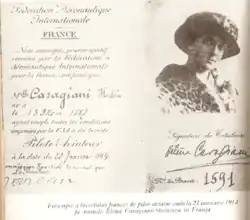 Fédération Aéronautique
Internationale
FRANCE
Nous soussignés, pouvoir sportif
reconnu par la Fédération
Aéronautique Internationale
pour la France, certifions que
Mlle Caragiani
né à
le 13
1887
toutes les conditions
imposées par la F.A.I. a été breveté
Pilote-Aviateur
à la date du 22 Janvier 1914
Signature du Titulaire
Elena Caragiani
No du Brevet 1591
Fotocopie a brevetului francez de pilot aviator emis la 22 ianuarie 1914
pe numele Elena Caragiani-Stoienescu în Franţa